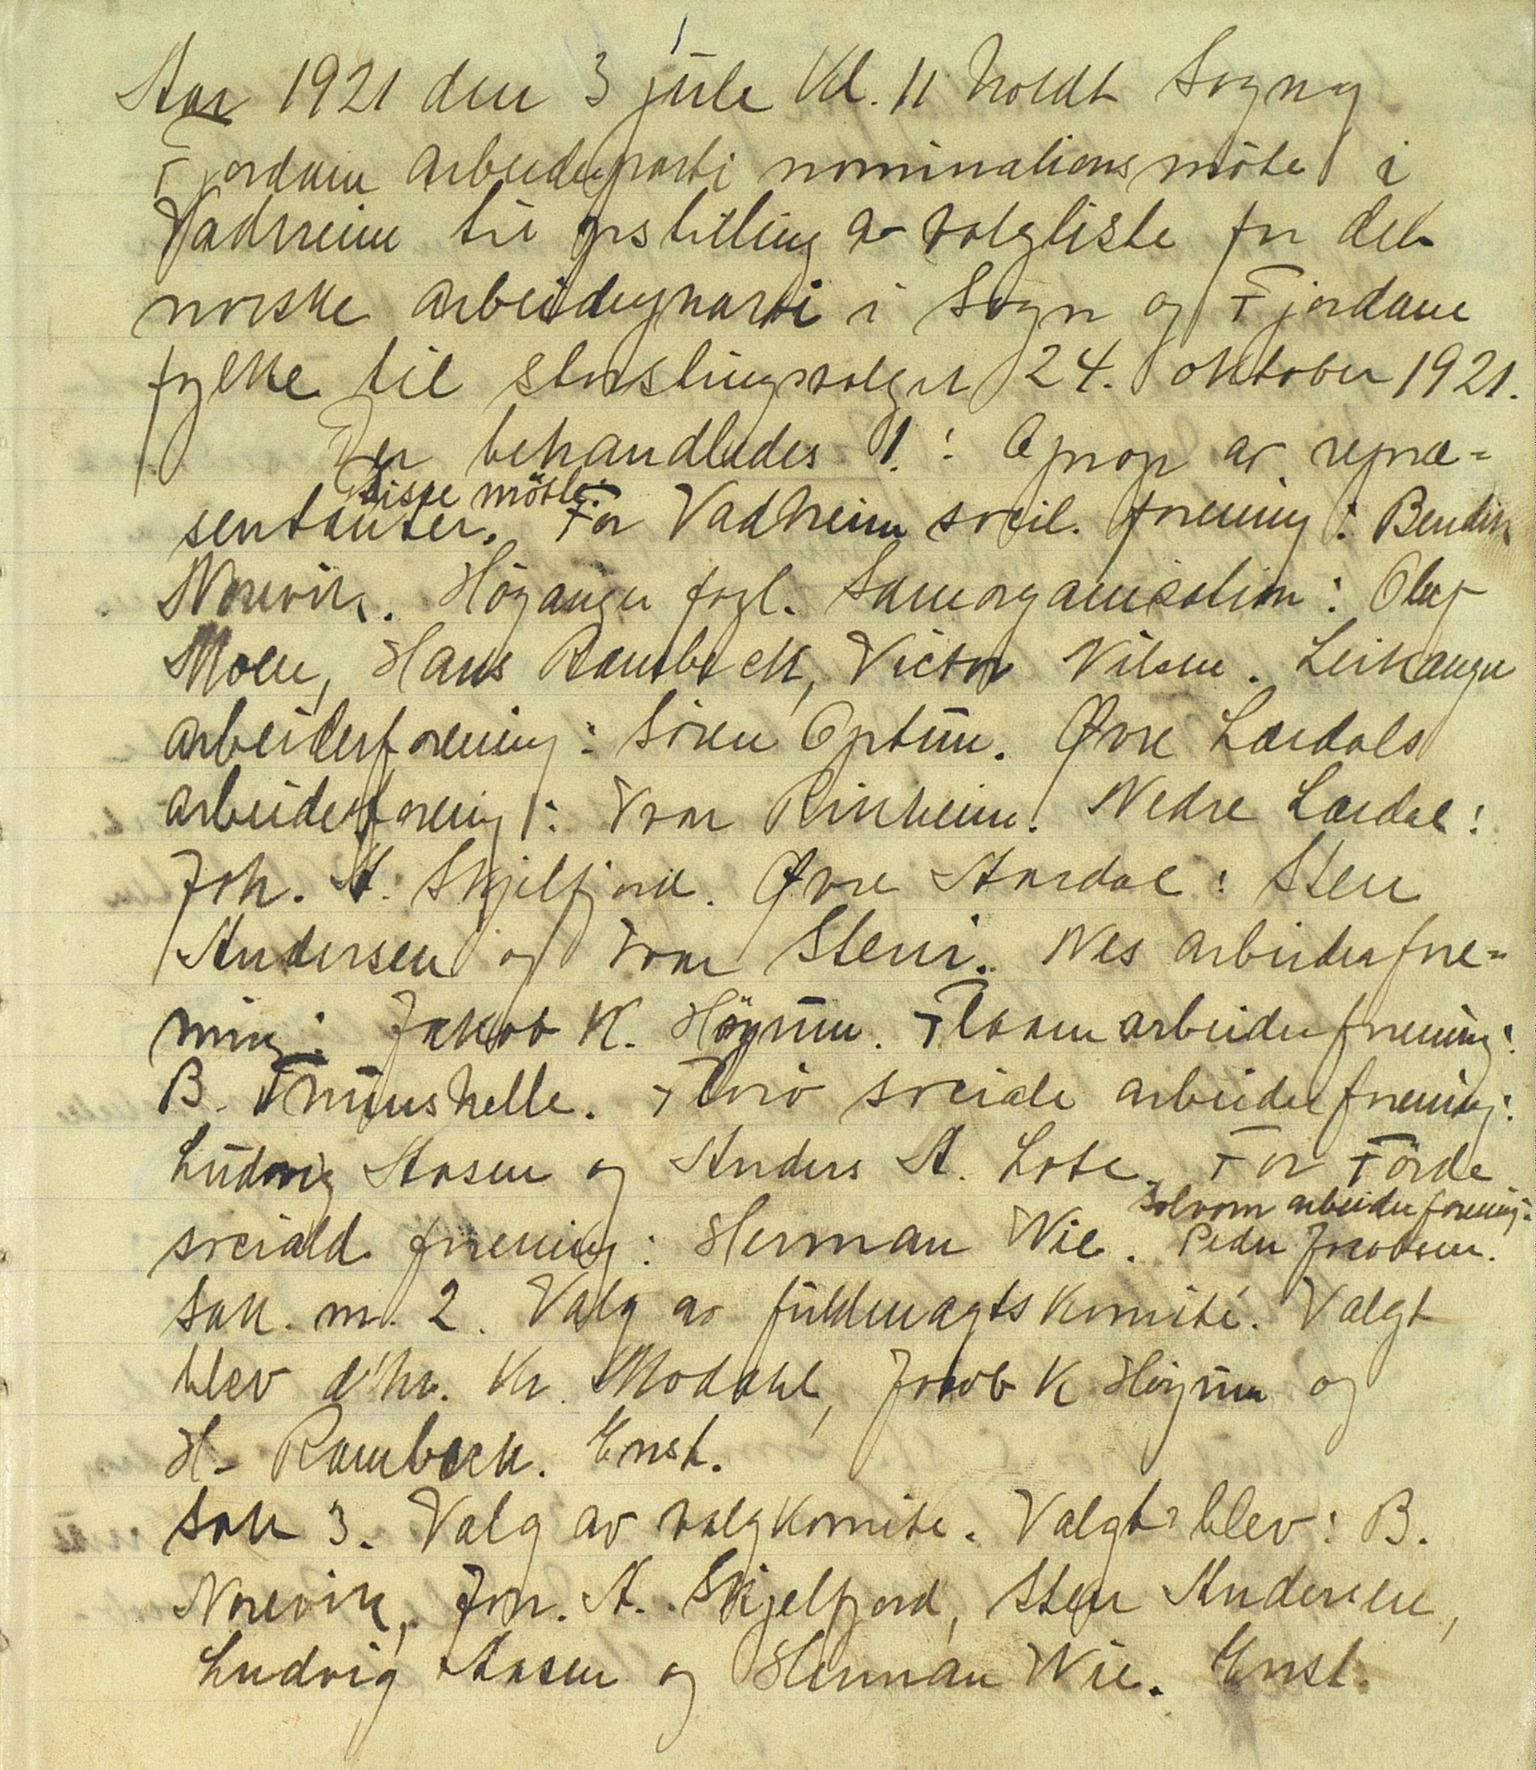 Aar 1921 den 3 jule kl. 11 holdt Sogn og
Fjordane arbeiderparti nominationsmöte i
Vadheim til opstilling av valgliste for det
norske arbeiderparti i Sogn og Fjordane
fylke til stortingsvalget 24. oktober 1921.
Der behandledes 1.: Oprop av repræ=
Disse mötte:
sentanter. For Vadheim social. forening: Bendik
Norevik. Höyanger fagl. Samorganisation: Olaf
Moen, Hans Rambeck, Victor Nilsen. Leikanger
arbeiderforening: Sören Optun. Øvre Lærdals
arbeiderforening: Ivar Rinheim. Nedre Lærdal:
Joh. A. Skjelfjord. Øvre Aardal: Sten
Andersen og Ivar Steni. Nes arbeiderfore=
ning: Jakob K. Höyum. Flaam arbeiderforening:
B. Fmunshelle. Florö sociale arbeiderforening:
Ludvig Aasen og Anders A. Lote. For Förde
Solvorn arbeiderforening:
sociald. forening: Herman Wie. Peder Jacobsen.
Sak. nr. 2. Valg av fuldmagtskomité. Valgt
blev d'hr. Kr. Modahl, Jacob K Höyum og
H. Rambeck. Enst.
Sak 3. Valg av valgkomite. Valgt blev: B.
Norevik, Joh. A. Skjelfjord, Sten Andersen,
Ludvig Aasen og Herman Wie. Enst.